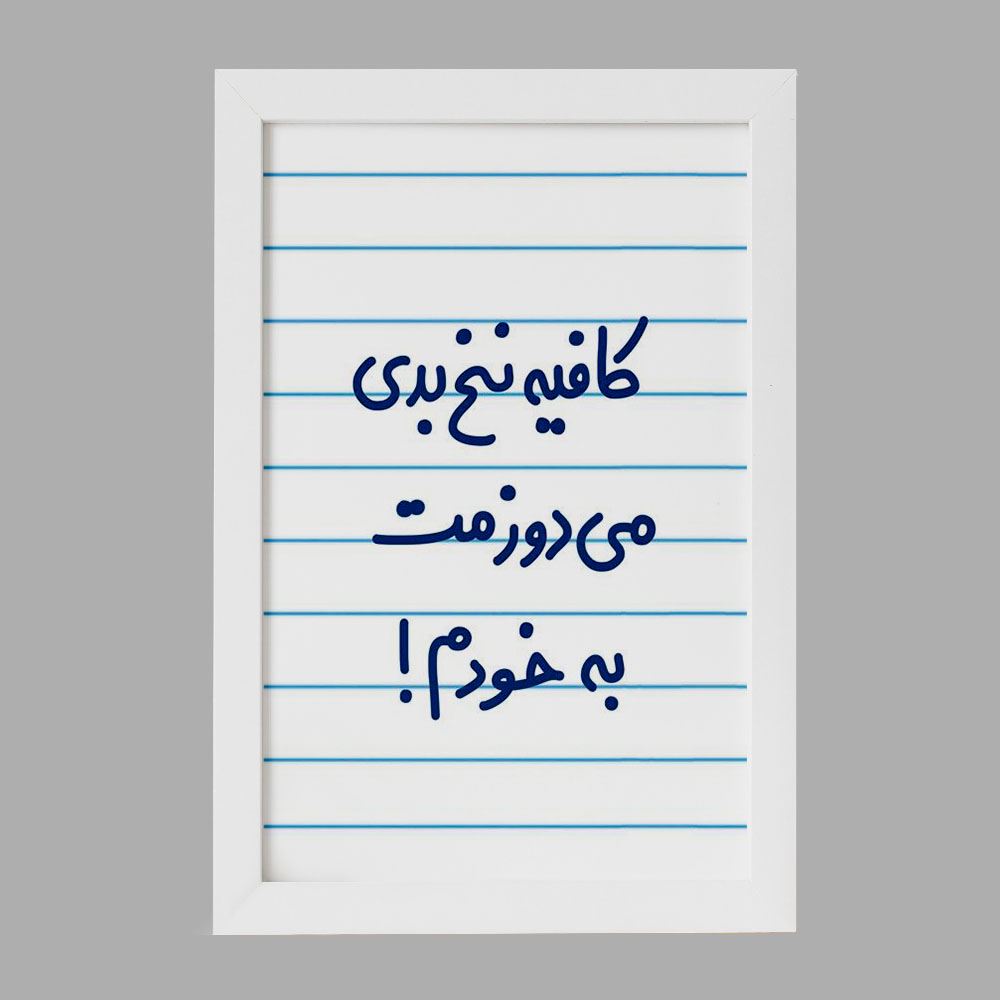 کافیه نخ بدی
می دوزمت
به خودم!